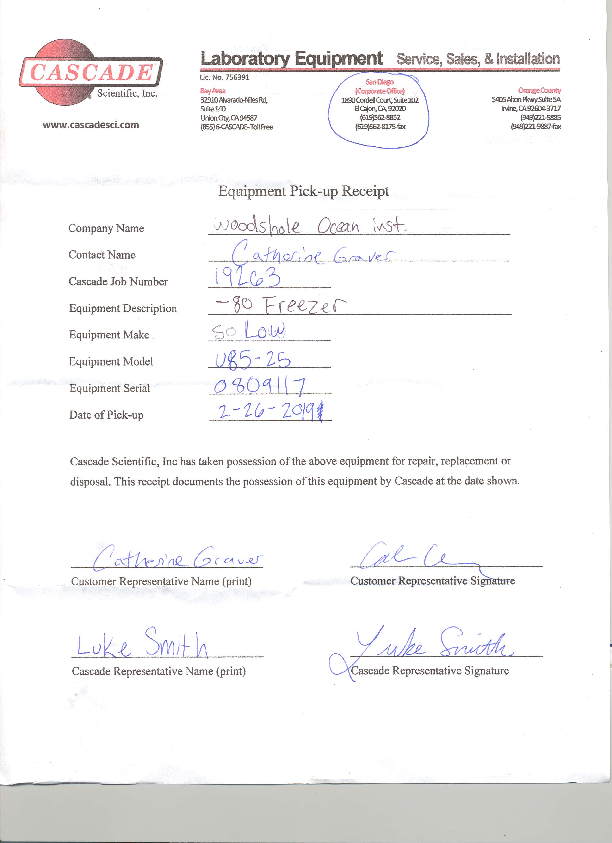 CASCADE
Scientific, Inc.
www.cascadesci.com
Laboratory Equipment Service, Sales, & Installation
Lic. No. 756391
Bay Area
32910 Alvarado-Niles Rd,
Suite 140
Union City, CA 94587
(855) 6-CASCADE-Toll Free
San Diego
(Corporate Office)
1890 Cordell Court, Suite 102
El Cajon, CA, 92020
(619)562-8852
(619)562-8175-fax
Orange County
5405 Alton Pkwy Suite 5A
Irvine, CA 92604-3717
(949)221-9885
(949)221-9887-fax
Equipment Pick-up Receipt
Company Name Woodshole Ocean inst.
Contact Name Catherine Graver
Cascade Job Number 19263
Equipment Description -80 Freezer
Equipment Make So Low
Equipment Model U85-25
Equipment Serial 0809117
Date of Pick-up 2-26-2019
Cascade Scientific, Inc has taken possession of the above equipment for repair, replacement or
disposal. This receipt documents the possession of this equipment by Cascade at the date shown.
Catherine Graver
Customer Representative Name (print) Customer Representative Signature
Luke Smith Luke Smith
Cascade Representative Name (print) Cascade Representative Signature